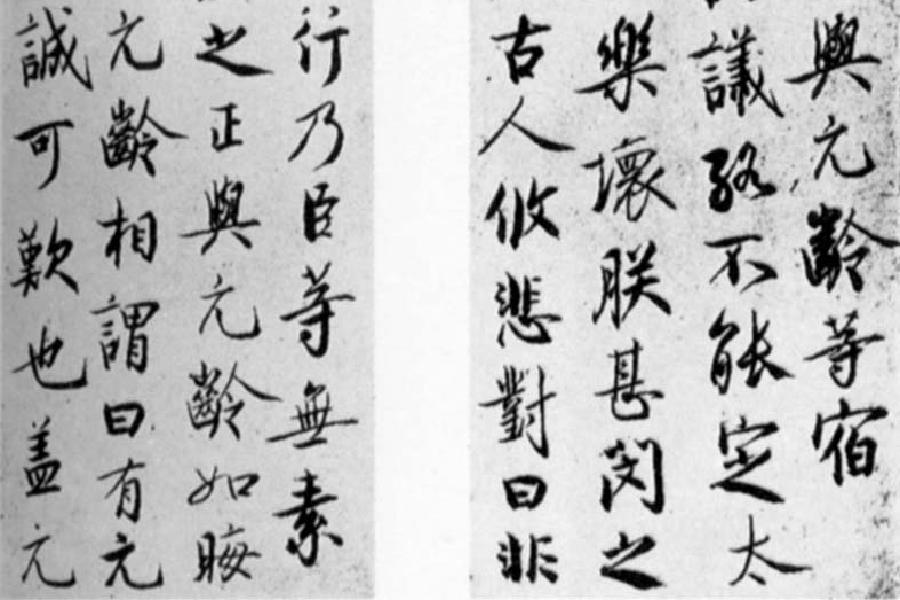 與元齡等宿
議不能定太
樂壞朕甚閔之
古人攸悲對曰非
行乃臣等無素
之正與元齡如晦
元齡相謂曰有元
誠可歎也盖元